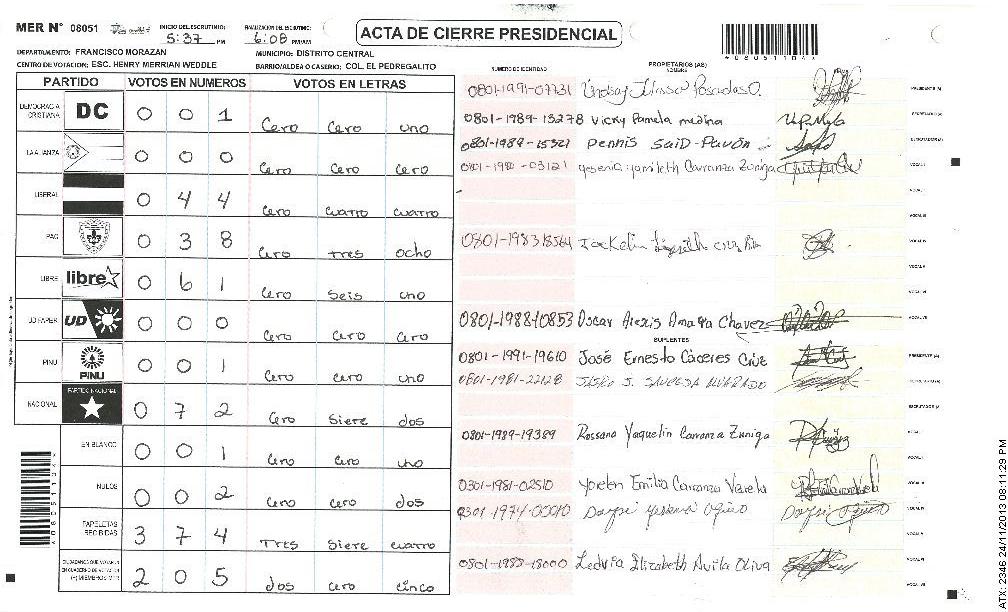 MER N° 08051 INICIO DEL ESCRUTINIO: 5:37 PM FINALIZACION DEL ESCRUTINIO: 6:08 PM/AM
ACTA DE CIERRE PRESIDENCIAL
DEPARTAMENTO: FRANCISCO MORAZAN MUNICIPIO: DISTRITO CENTRAL
CENTRO DE VOTACION: ESC. HENRY MERRIAN WEDDLE BARRIO/ALDEA O CASERIO: COL. EL PEDREGALITO
PARTIDO VOTOS EN NUMEROS VOTOS EN LETRAS
DEMOCRACIA CRISTIANA DC 0 0 1 Cero Cero uno
LA ALIANZA 0 0 0 Cero Cero Cero
LIBERAL 0 4 4 Cero cuatro cuatro
PAC 0 3 8 Cero tres ocho
LIBRE libre 0 6 1 Cero seis uno
UD FAPER UD 0 0 0 Cero Cero Cero
PINU PINU 0 0 1 Cero Cero uno
NACIONAL PARTIDO NACIONAL 0 7 2 Cero siete dos
EN BLANCO 0 0 1 Cero Cero uno
NULOS 0 0 2 Cero Cero dos
PAPELETAS RECIBIDAS 3 7 4 Tres siete cuatro
CIUDADANOS QUE VOTARON EN CUADERNO DE VOTACION (+) MIEMBROS MER 2 0 5 dos cero cinco
NUMERO DE IDENTIDAD PROPIETARIOS (AS) NOMBRE
0801-1991-07731 Lindsay
PRESIDENTE (A)
0801-1989-13278 Vicky Pamela medina
SECRETARIO (A)
0801-1989-15321 Dennis Said Pavón
ESCRUTADOR (A)
0801-1980-03121 Yesenia Yamileth Carranza Zuniga
VOCAL I
0801-198318564 Jackelin
0801-1988-10853 Oscar Alexis Amaya Chavez
SUPLENTES
0801-1991-19610 José Ernesto Cáceres Cruz
PRESIDENTE (A)
0801-1981-22128
SECRETARIO (A)
ESCRUTADOR (A)
0801-1989-19389 Rossana Yaquelin Carranza Zuniga
0301-1981-02510 Yorelen Emilia Carranza Varela
0301-1974-00010
0801-1983-18000 Ledvia Elizabeth Avila Oliva
*08051104*
*08051104*
ATX: 2346 24/11/2013 08:11:29 PM